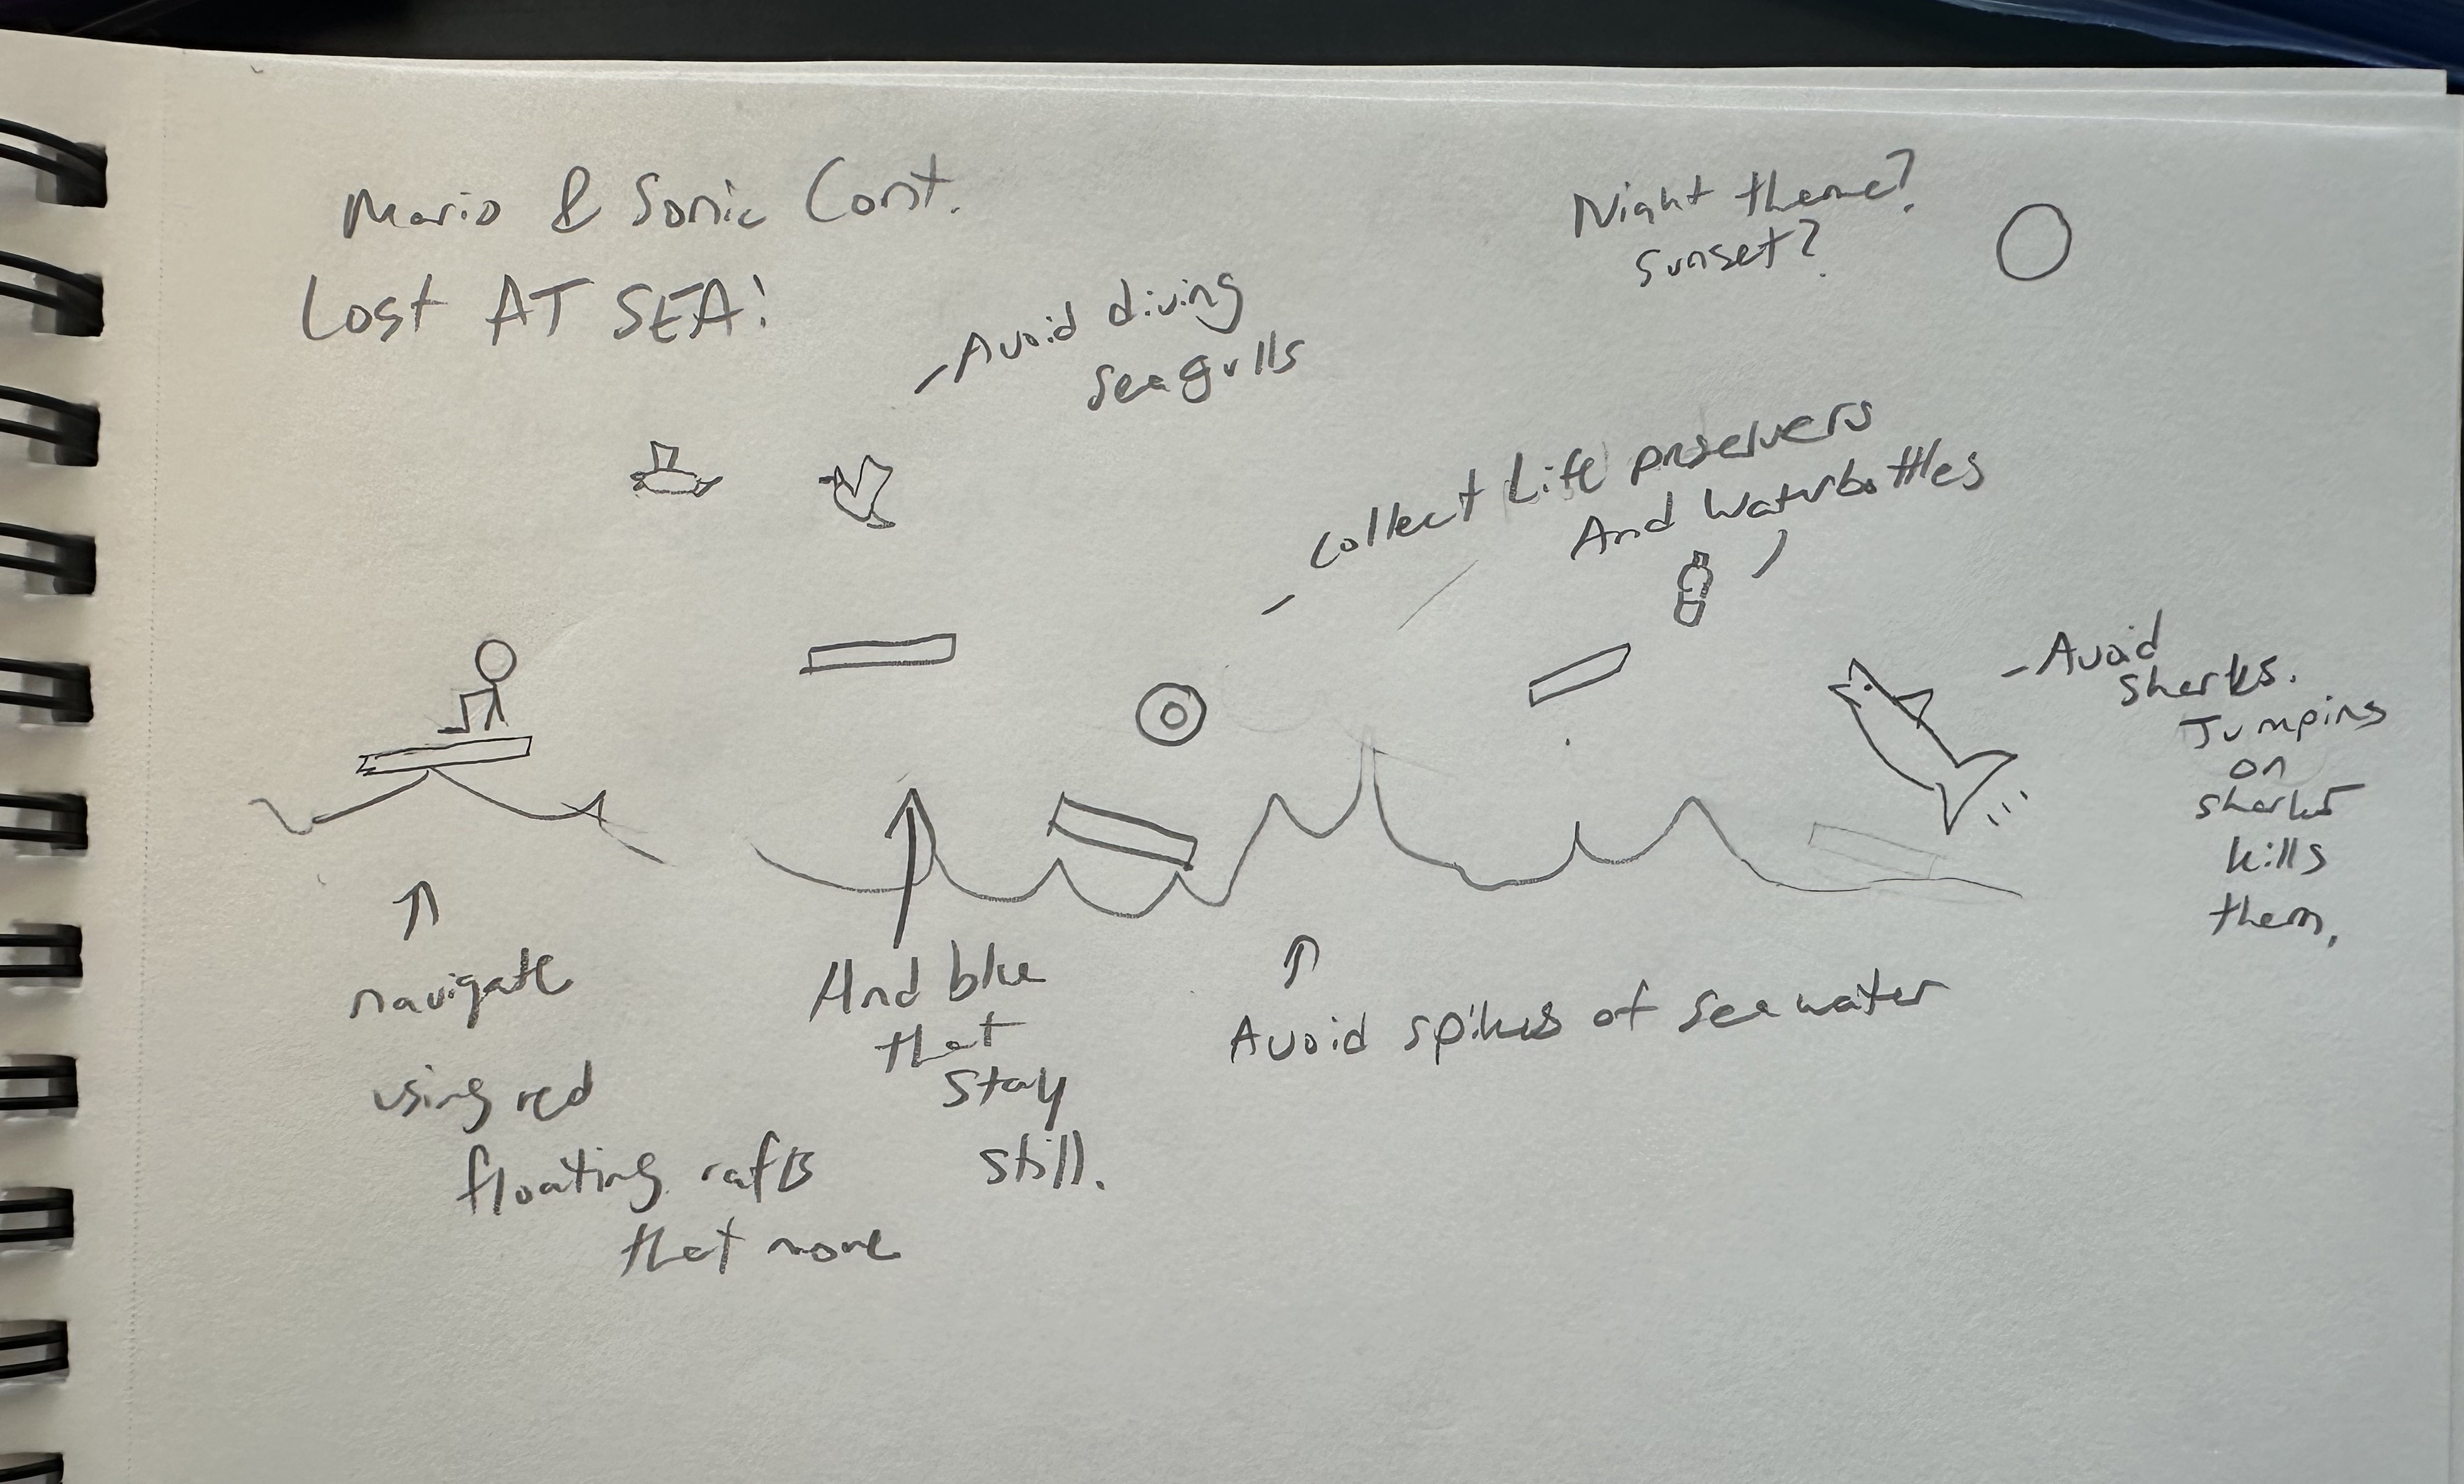 Mario & Sonic Cont.
Lost AT SEA!
Night theme?
Sunset?
- Avoid diving
seagulls
- Collect Life preservers
And Waterbottles
- Avoid
sharks.
Jumping
on
sharks
kills
them.
navigate
using red
floating rafts
that move
And blue
that
stay
still.
Avoid spikes of sea water